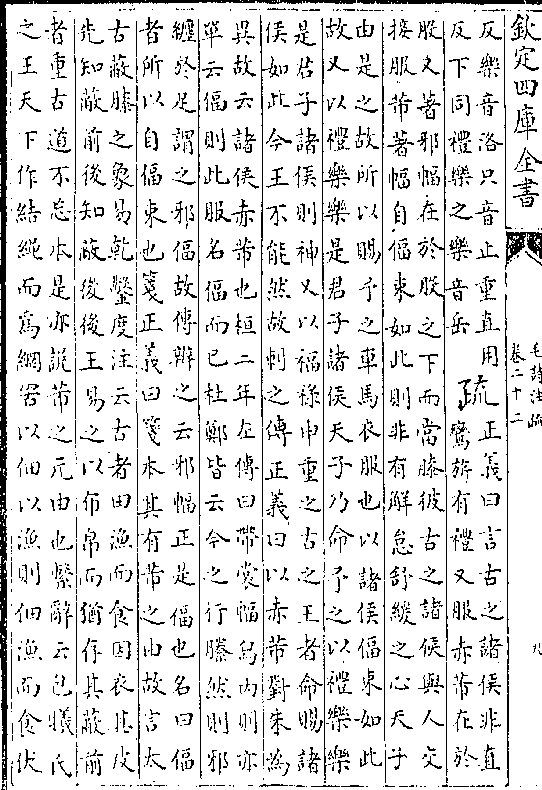 欽定四庫全書
毛詩注疏
卷二十二
九
反樂音洛只音止重直用
反下同禮樂之樂音岳
疏
正義曰言古之諸侯非直
鸞旂有禮又服赤芾在於
股又著邪幅在於股之下而當膝彼古之諸侯與人交
接服芾著幅自偪束如此則非有解怠舒緩之心天子
由是之故所以賜予之車馬衣服也以諸侯偪束如此
故又以禮樂樂是君子諸侯天子乃命予之以禮樂樂
是居子諸侯則神又以福祿申重之古之王者命賜諸
侯如此今王不能然故刺之傳正義曰以赤芾對朱為
異故云諸侯赤芾也桓二年左傳曰帶裳幅舄内則亦
單云偪則此服名偪而已杜鄭皆云今之行縢然則邪
纒於足謂之邪偪故傳辨之云邪幅正是偪也名曰偪
者所以自偪束也箋正義曰箋本其有芾之由故言太
古蔽膝之象易乾鑿度注云古者田漁而食因衣其皮
先知蔽前後知蔽後後王易之以布帛而猶存其蔽前
者重古道不忘本是亦說芾之元由也繫辭云包犧氏
之王天下作結繩而為網罟以佃以漁則佃漁而食伏